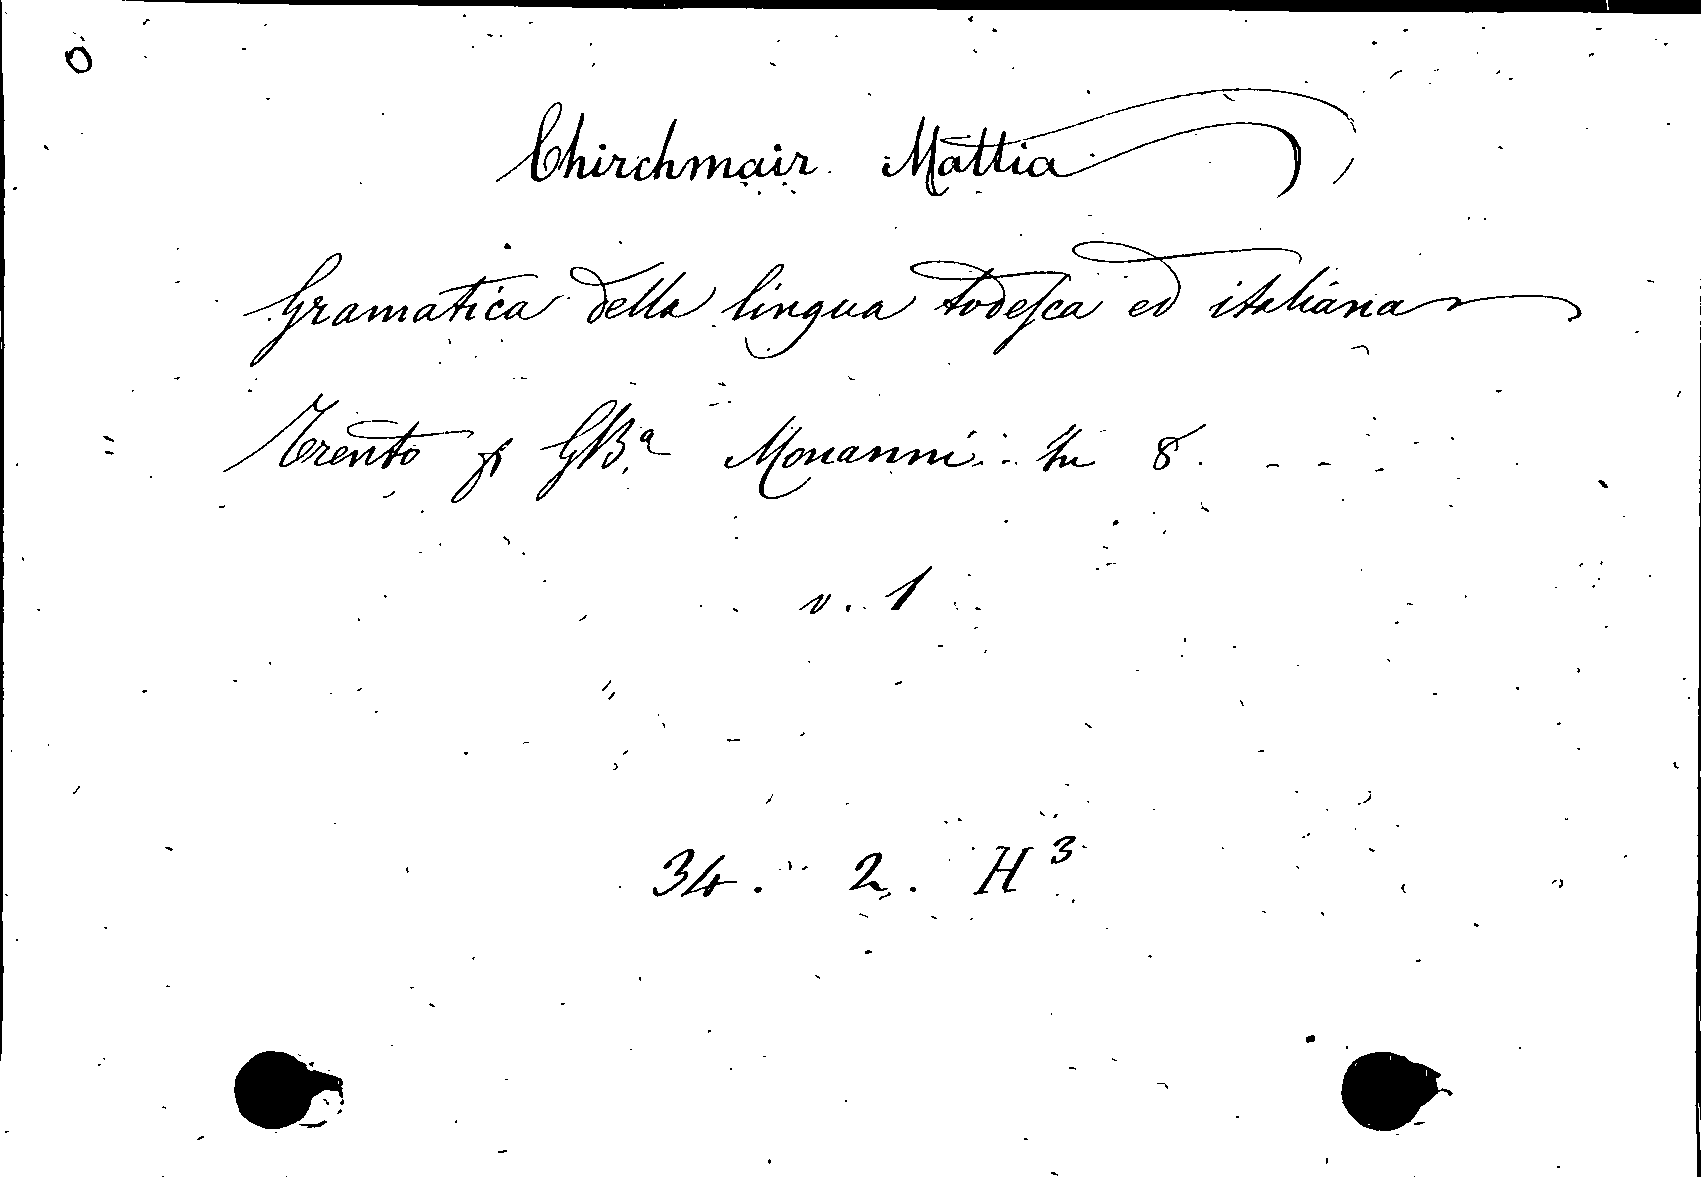 O
Chirchmair Mattia
Gramatica della lingua todesca ed italiana
Trento p GBa Monanni In 8
v. 1
34. 2. H 3